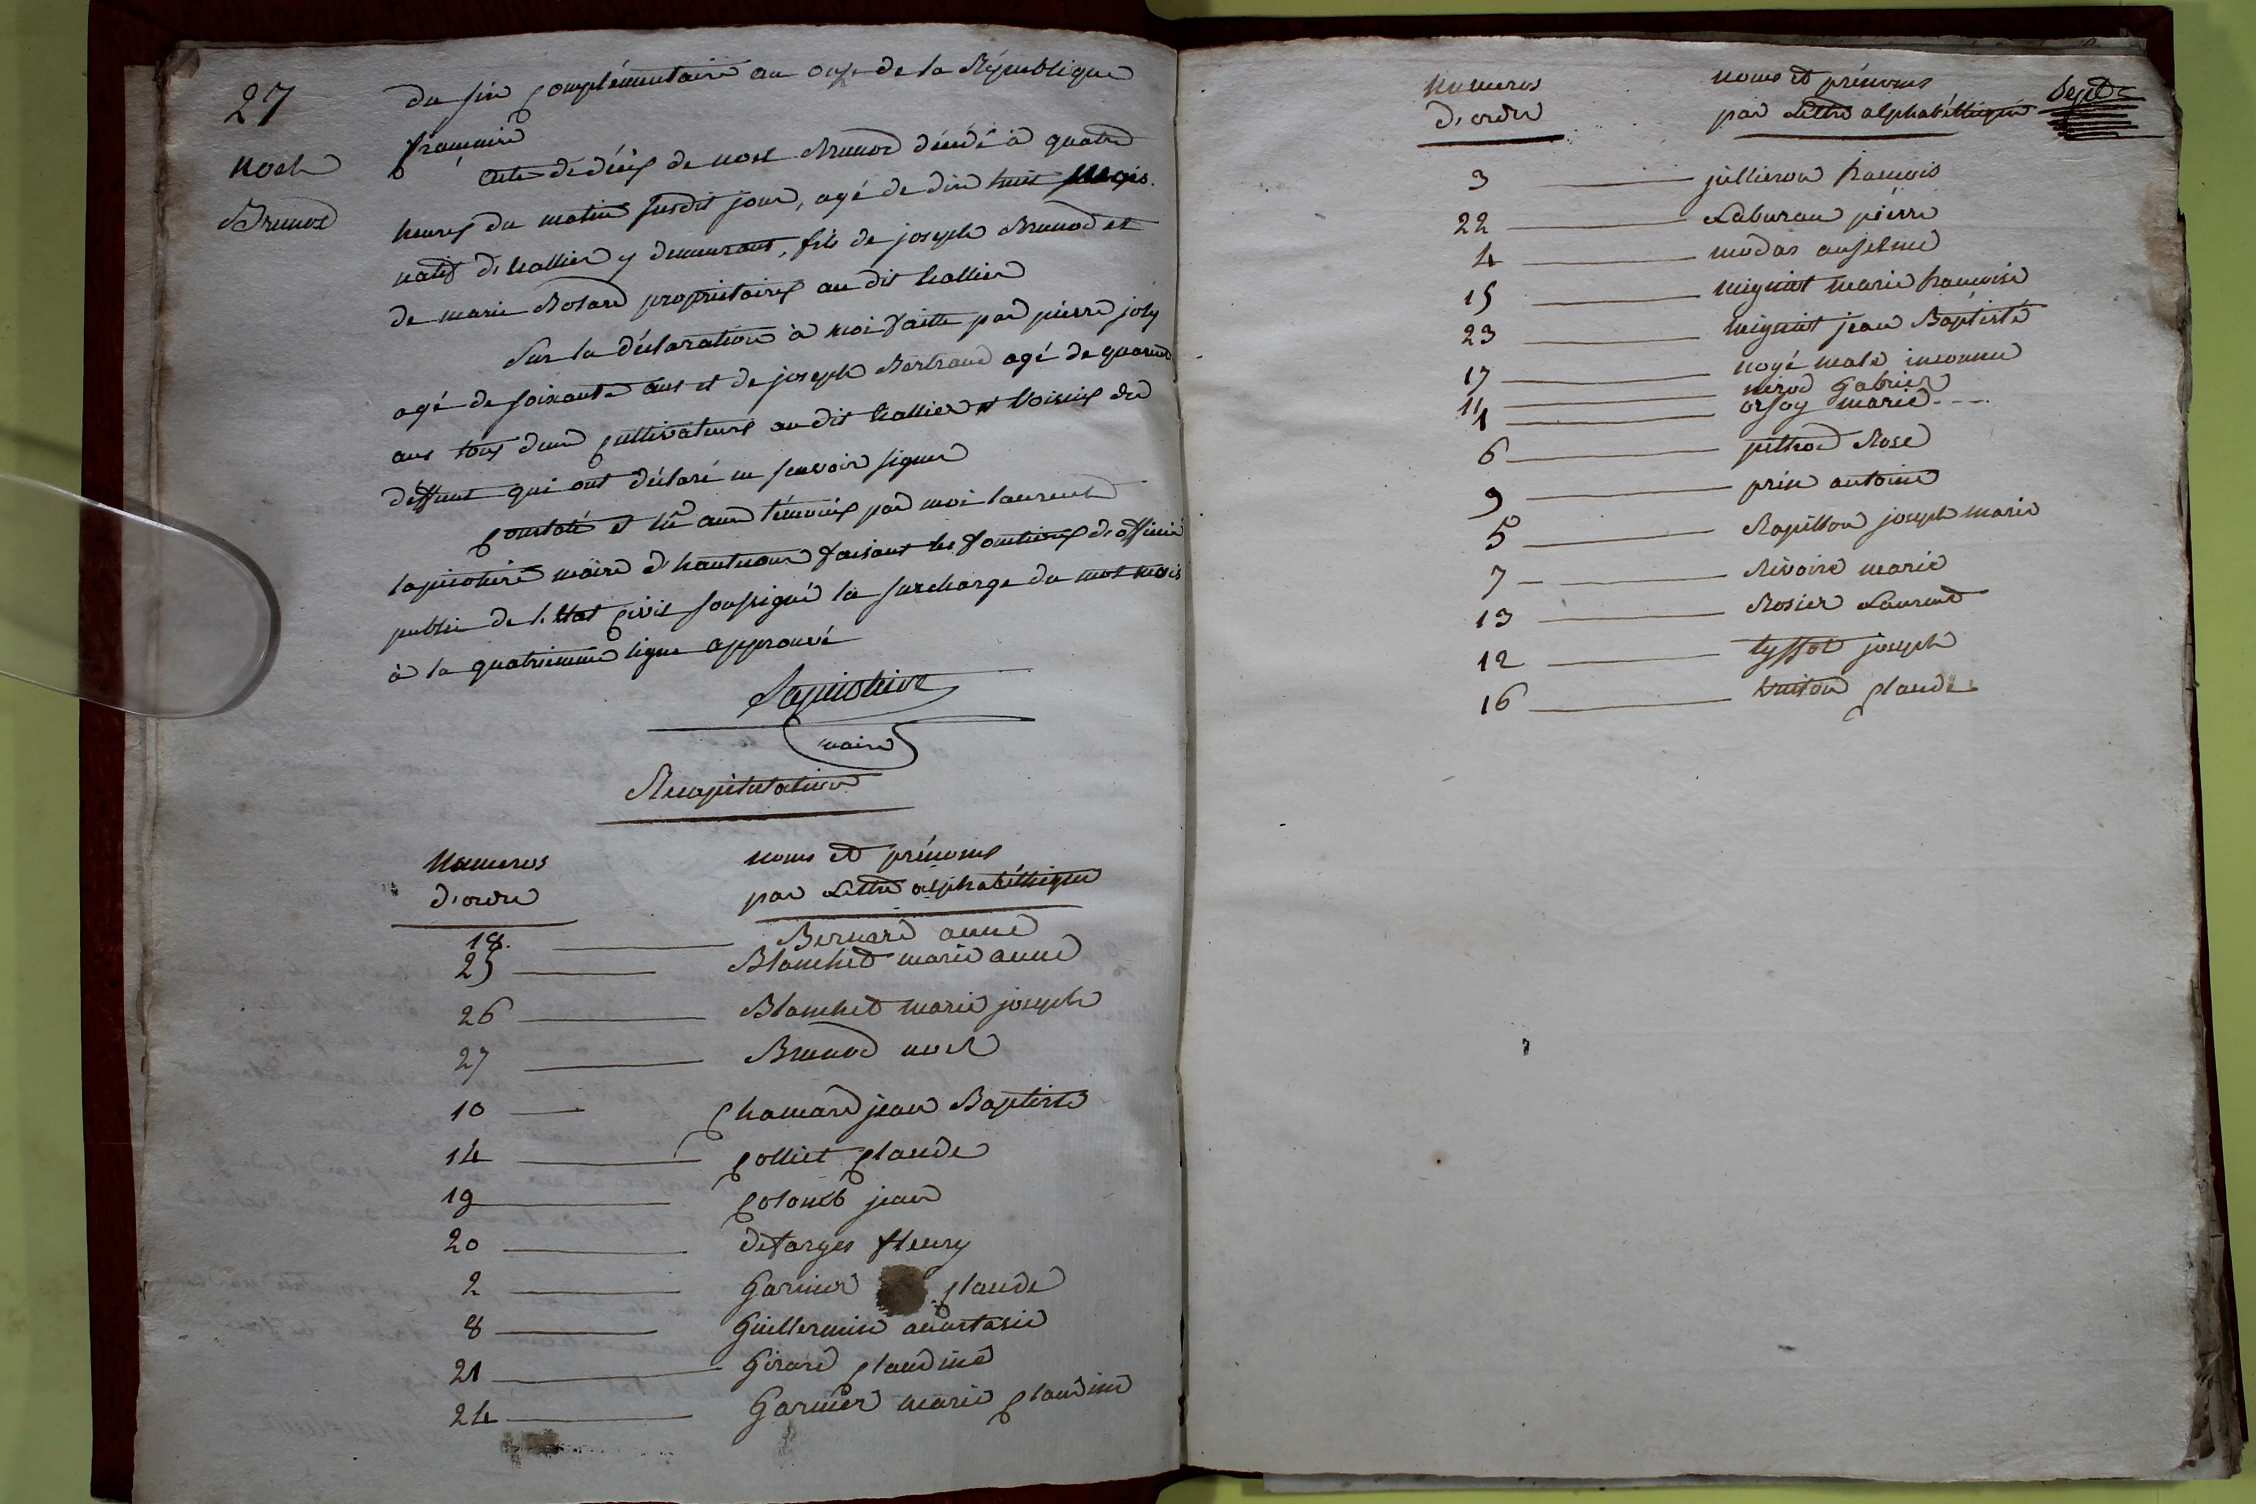 27
noel
Brunod
du six complémentaire an onze de la République
française
acte de décès de noel Brunod décédé à quatre
heures du matin susdit jour, agé de dix huit mois
natif d'hallier y demeurant, fils de joseph Brunod et
de marie Bolard propriétaires au dit hallier
Sur la déclaration à moi faitte par pierre joly
agé de soixante ans et de joseph Bertrand agé de quarente
ans tous deux cultivateurs au dit hallier et voisins du
deffunt qui ont déclaré ne scavoir signer
Constaté et lû aux témoins par moi laurent
lapierre maire d'hauteour faisant les fonctions d'officié
public de l'Etat civil soussigné la surcharge du mot mois
à la quatriemme ligne approuvé
maire
Recapitulation
Numeros
d'ordre
noms et prénoms
par Lettre alphabéthique
18. Bernard anne
25 Blanchet marie anne
26 Blanchet marie joseph
27 Brunod noel
10 Chamard jean Baptiste
14 Colliet Claude
19 Colomb jean
20 defarges fleury
2 Garnier Claude
8 Guillermin anastasie
21 Girard Claudine
24 Garnier marie Claudine
Numeros
d'ordre
noms et prénoms
par Lettre alphabéthique
Sept
3 jullieron francois
22 Laburau pierre
4 modas anselme
15 mignot marie francoise
23 mignot jean Baptiste
17 noyé male inconnu
11 nerod Gabriel
1 orsoy marie
6 pethod Rose
9 prin antoine
5 Rapillon joseph marie
7 Rivoire marie
13 Rosier Laurent
12 tyssot joseph
16 Claude